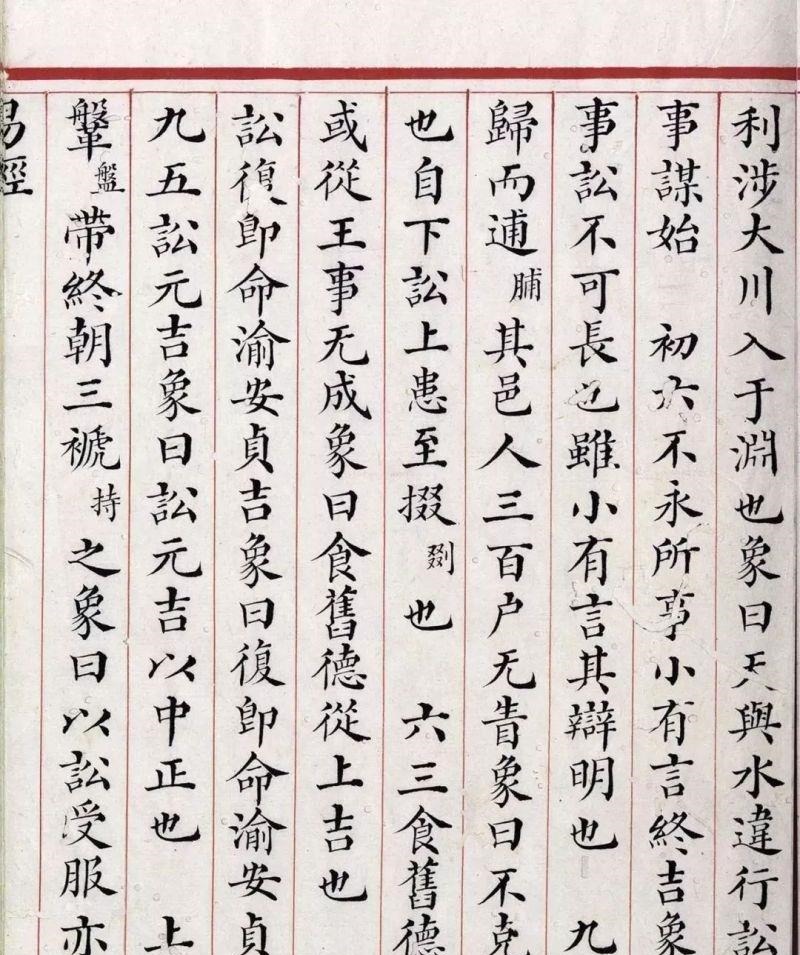 利涉大川入于淵也象曰天與水違行訟
事謀始 初六不永所事小有言終吉象
事訟不可長也雖小有言其辯明也 九
歸而逋脯其邑人三百户无眚象曰不克
也自下訟上患至掇剟也 六三食舊德
或從王事无成象曰食舊德從上吉也
訟復即命渝安貞吉象曰復即命渝安貞
九五訟元吉象曰訟元吉以中正也 上
鞶盤帶終朝三褫持之象曰以訟受服亦
易經